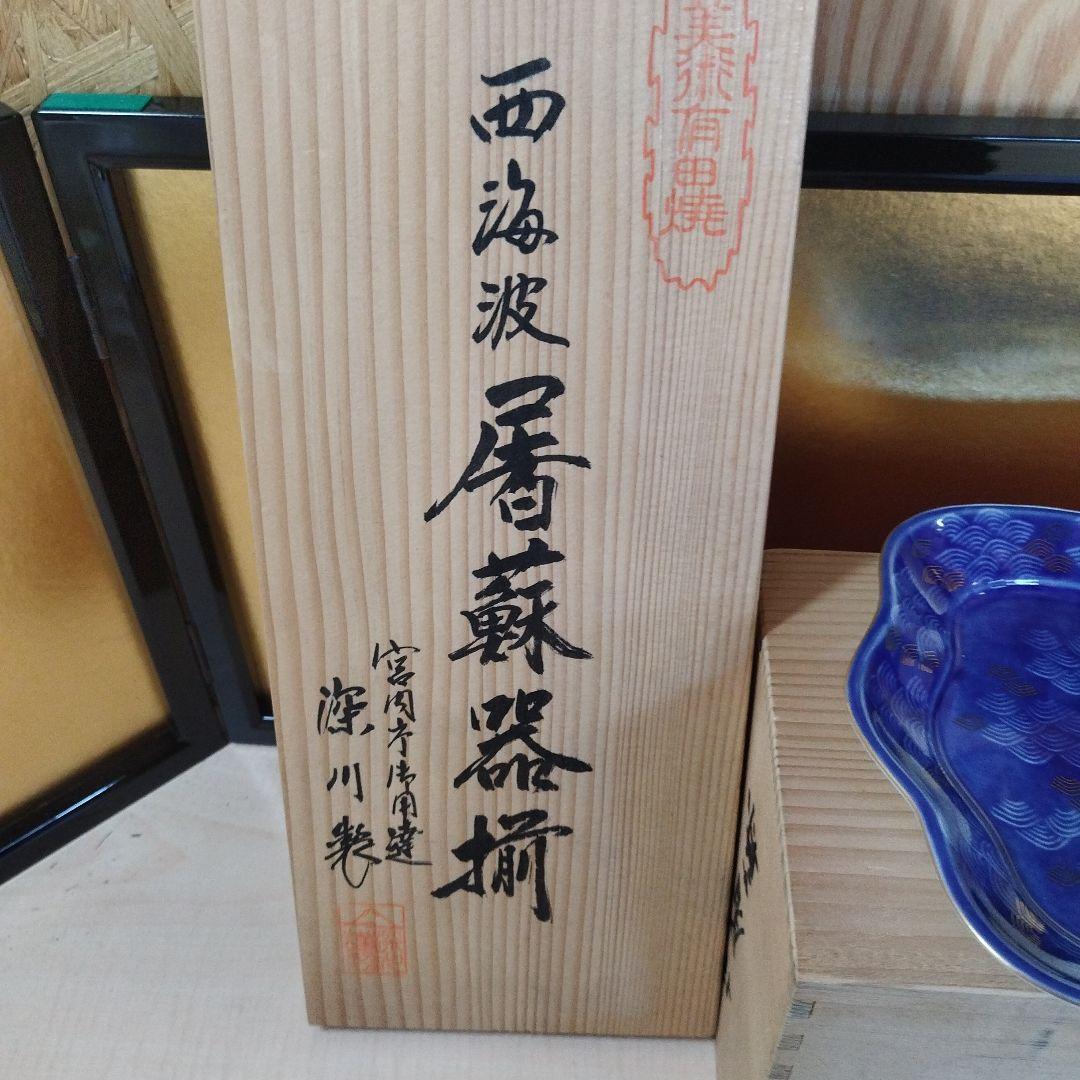 美術有田燒
西海波屠蘇器揃
宮内庁御用達
深川製